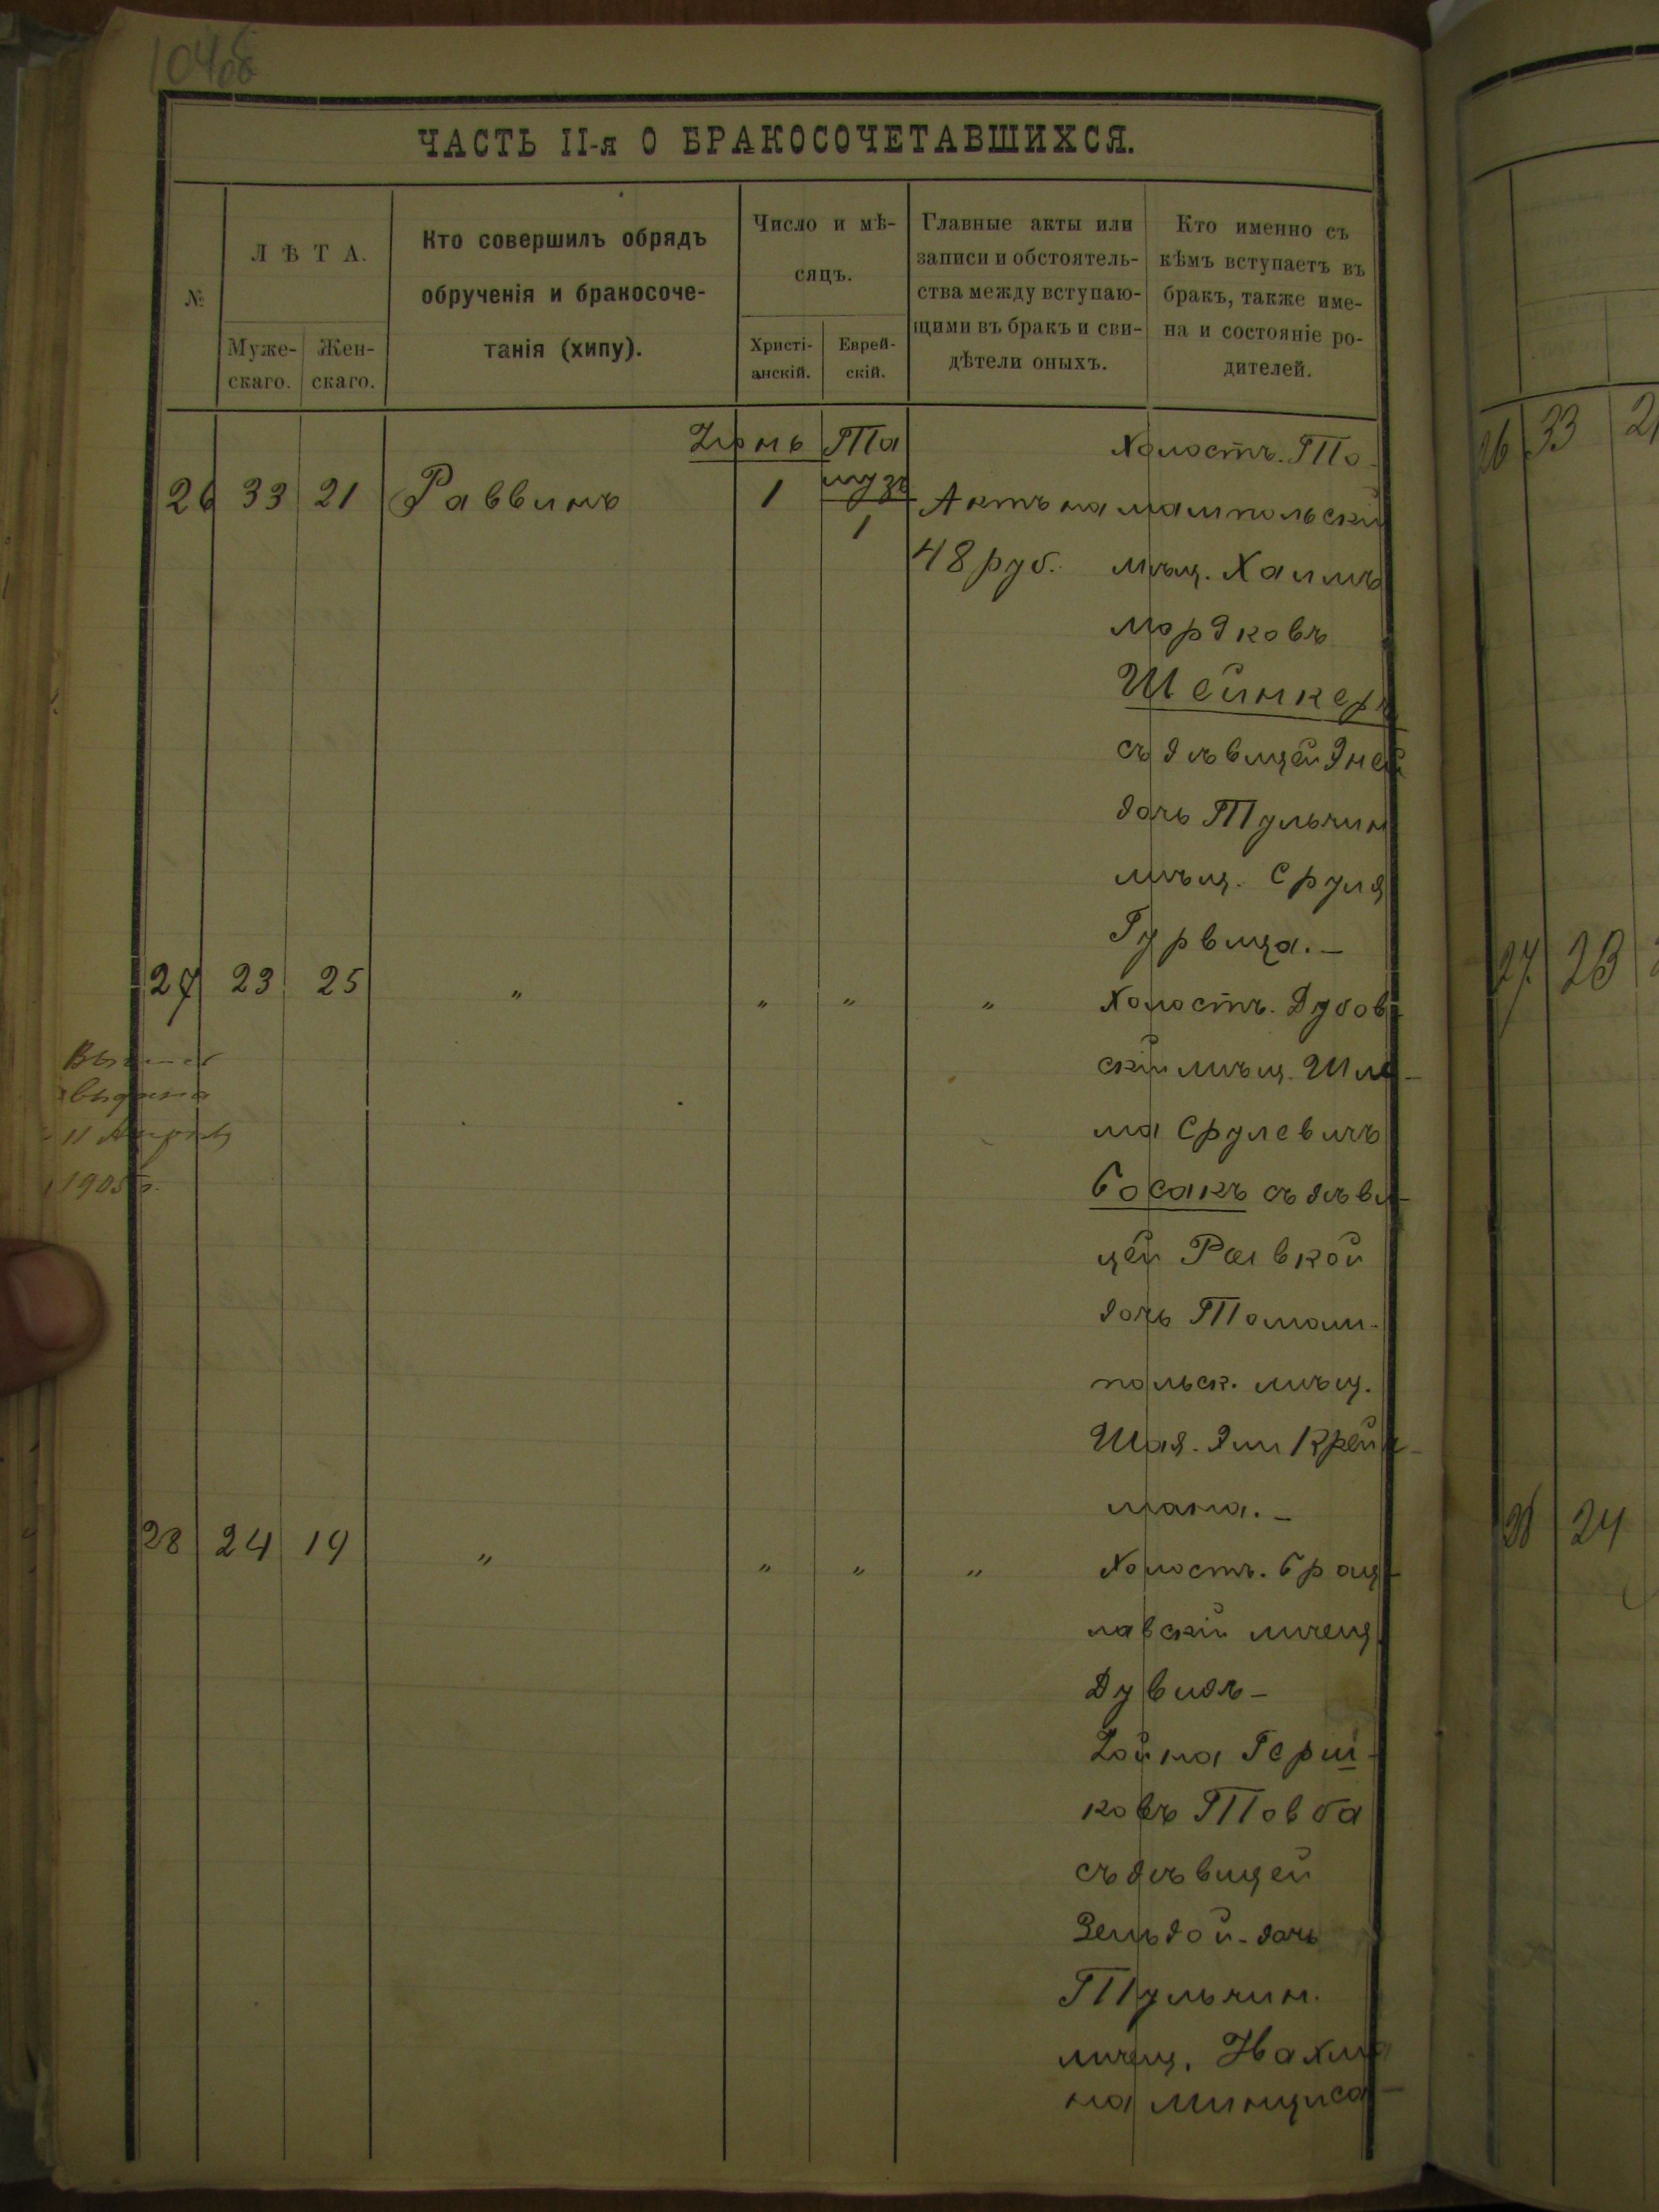 104об
ЧАСТЬ II-я О БРАКОСОЧЕТАВШИХСЯ.
№
ЛѢТА.
Муже-
скаго.
Жен-
скаго.
Кто совершилъ обрядъ
обрученія и бракосоче-
танія (хипу).
Число и мѣ-
сяцъ.
Христі-
анскій.
Еврей-
скій.
Главные акты или
записи и обстоятель-
ства между вступаю-
щими въ бракъ и сви-
дѣтели оныхъ.
Кто именно съ
кѣмъ вступаетъ въ
бракъ, также име-
на и состояніе ро-
дителей.
Iюнь Та
музъ
26 33 21 Раввинъ 1 1
Актъ на
48 руб.
Холостъ. То-
машпольскій
мѣщ. Хаимъ
Мордковъ
Шейнкеръ
съ дѣвицей Эней
дочь Тульчин
мѣщ. Сруля
Гурвица. –
27 23 25 " " " "
выдана
11 Апрѣля
1905 г.
Холостъ. Дубов-
скій мѣщ. Шле-
ма Срулевичъ
Босакъ съ дѣви-
цей Раевкой
дочь Томаш-
польск. мѣщ.
Шая-Эли Крей
мана. –
28 24 19 " " " "
Холостъ. Брац-
лавскій мѣщ.
Дувидъ-
Iойна Герш-
ковъ Товба
съ дѣвицей
Зельдой-дочь
Тульчин.
мѣщ. Нахма
на Минциса –
26 33 2
27 23
28 24